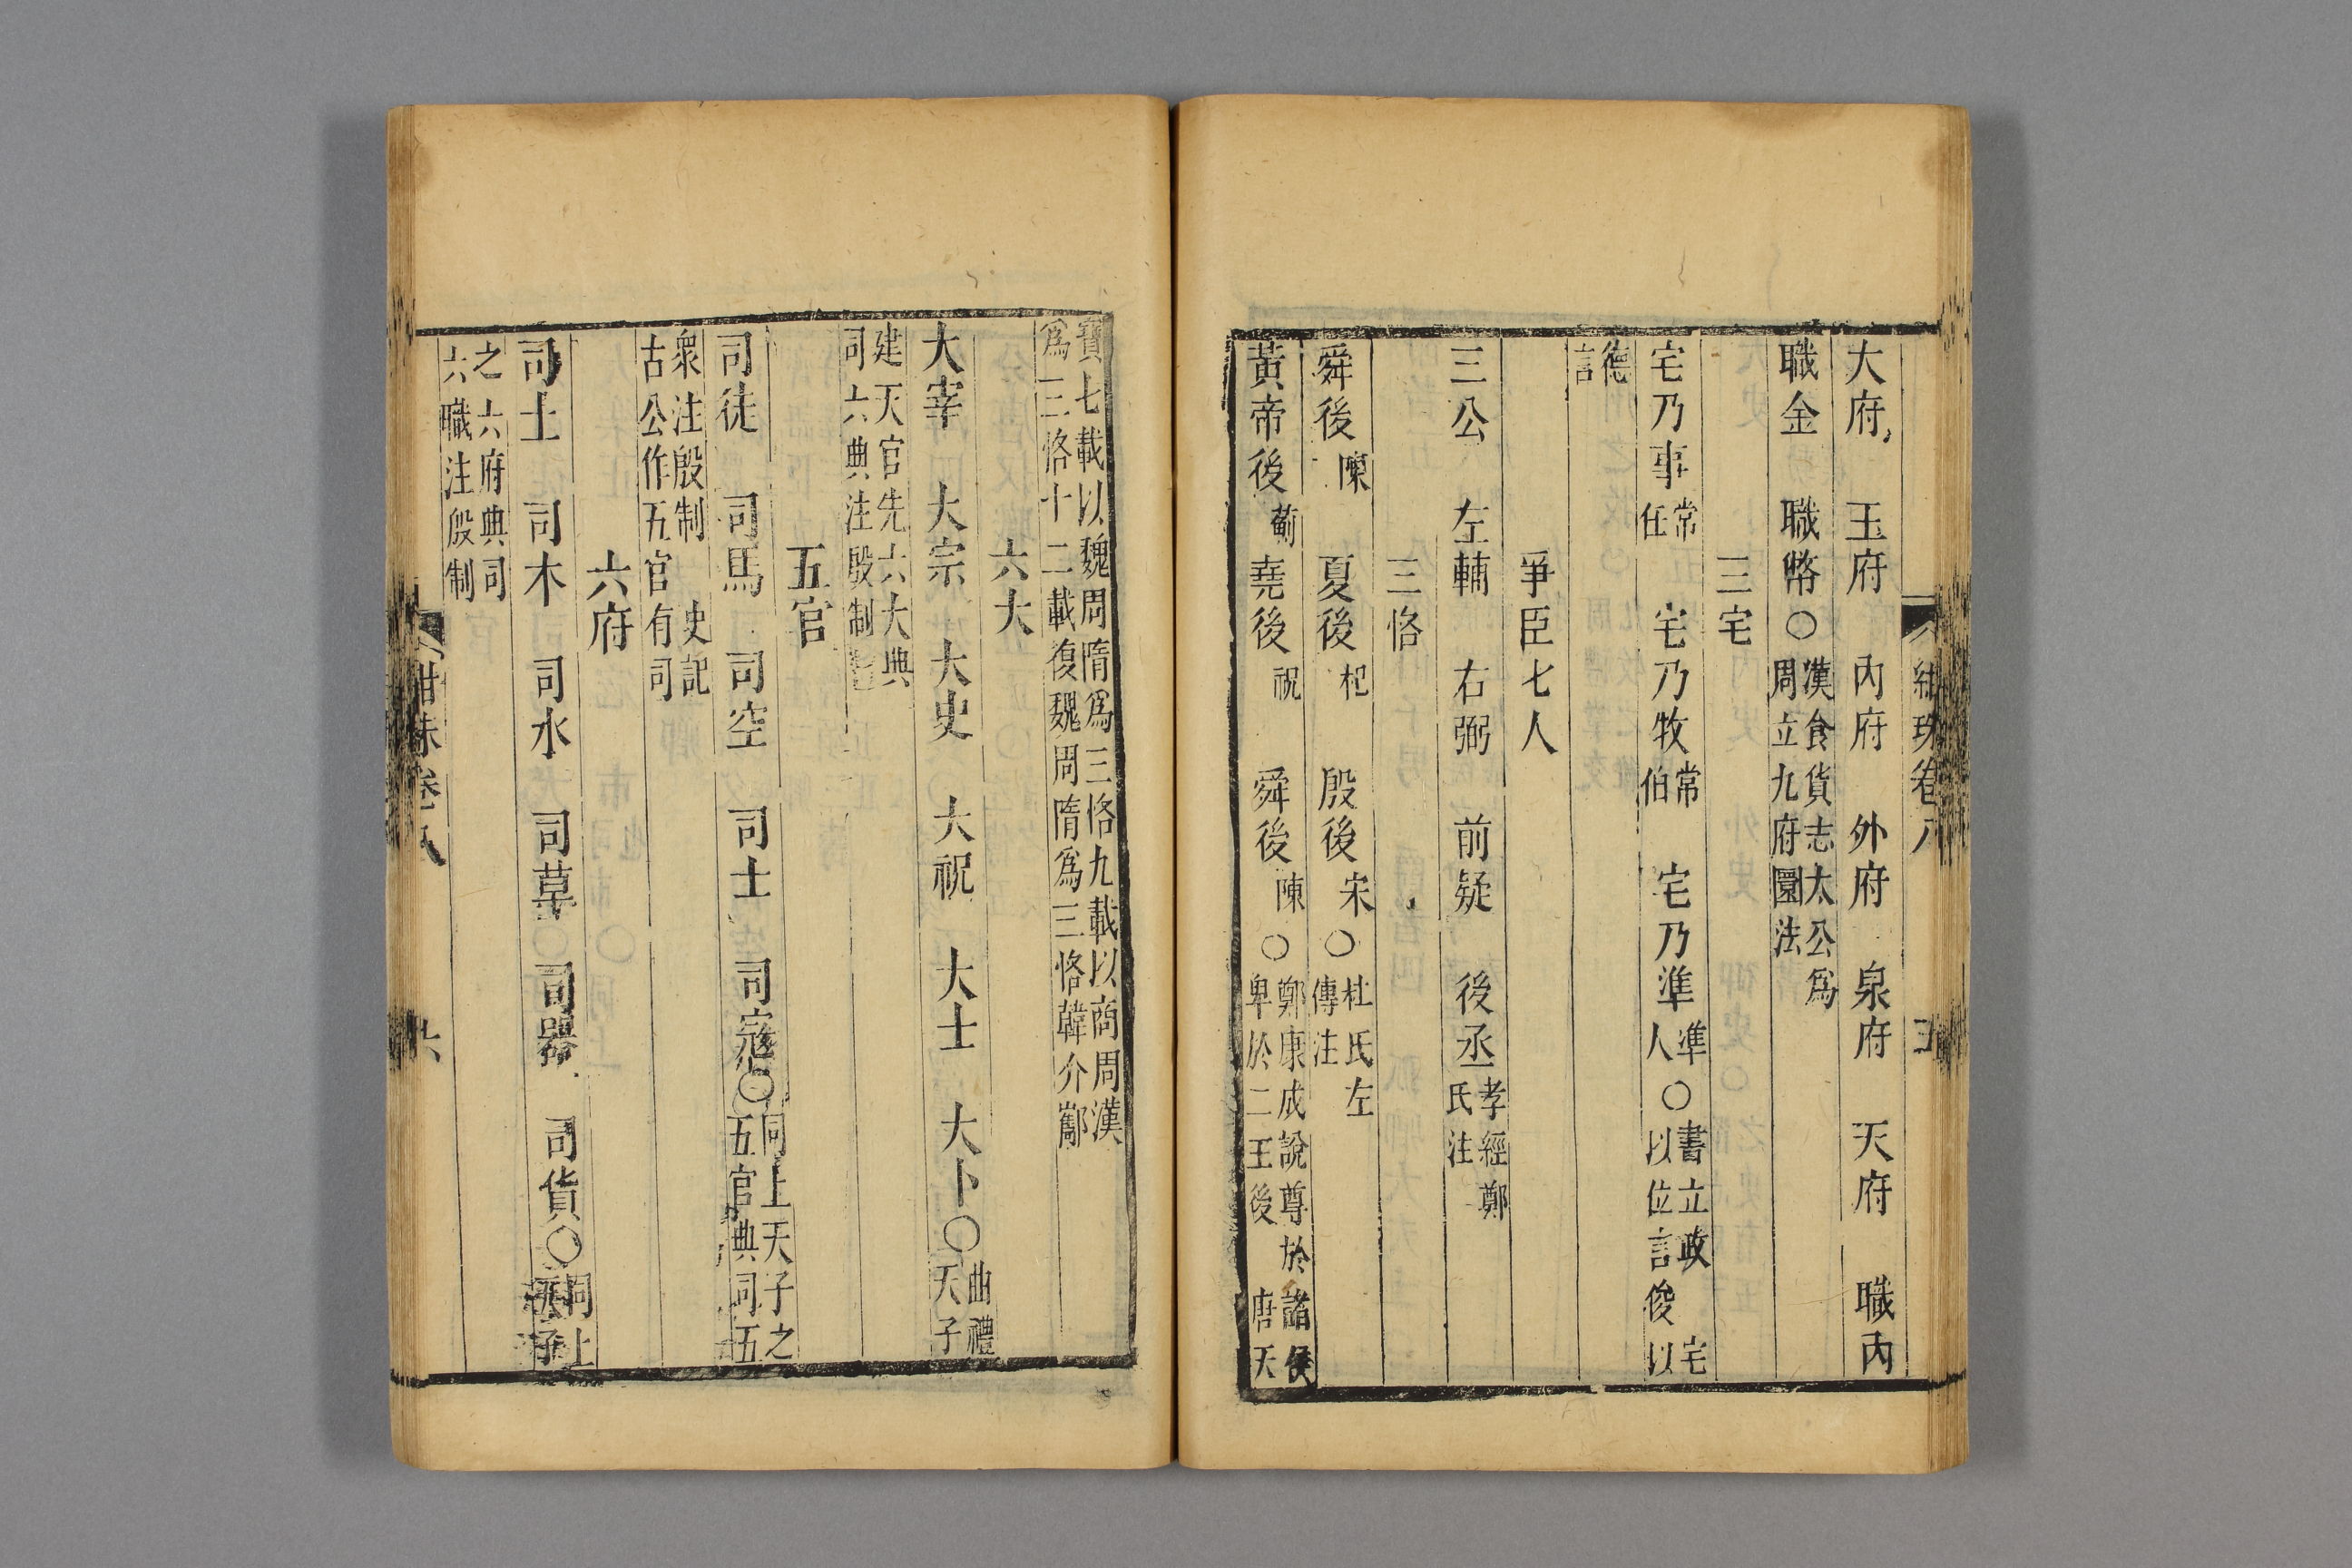 紺珠卷八 五
大府 玉府 內府 外府 泉府 天府 職內
職金 職幣○漢食貨志太公爲周立九府圜法
三宅
宅乃事常任 宅乃牧常伯 宅乃準準人○書立政宅以位言俊以
德言
爭臣七人
三公 左輔 右弼 前疑 後丞孝經鄭氏注
三恪
舜後陳 夏後杞 殷後宋○杜氏左傳注
黃帝後薊 堯後祝 舜後陳○鄭康成說尊於諸侯卑於二王後 唐天
寶七載以魏周隋爲三恪九載以商周漢爲三恪十二載復魏周隋爲三恪韓介酅
六大
大宰 大宗 大史 大祝 大士 大卜○曲禮天子
建天官先六大典司六典注殷制也
五官
司徒 司馬 司空 司士 司寇○同上天子之五官典司五
衆注殷制 史記古公作五官有司
六府
司土 司木 司水 司草 司器 司貨○同上天子
之六府典司六職注殷制
紺珠卷八 六